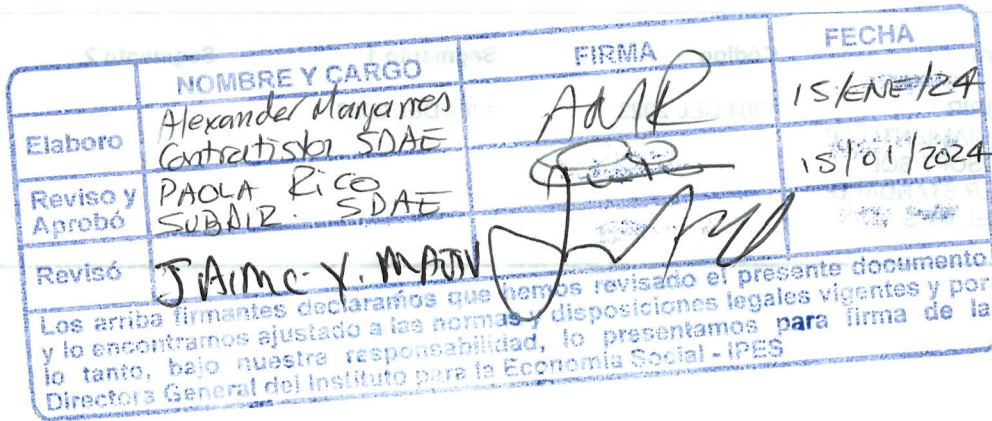 NOMBRE Y CARGO FIRMA FECHA
Elaboro Alexander Manjarres AMR 15/ENE/24
Contratista SDAE
Reviso y PAOLA RICO 15/01/2024
Aprobó SUBDIR. SDAE
Revisó JAIME Y.
Los arriba firmantes declaramos que hemos revisado el presente documento
y lo encontramos ajustado a las normas y disposiciones legales vigentes y por
lo tanto, bajo nuestra responsabilidad, lo presentamos para firma de la
Directora General del Instituto para la Economía Social - IPES